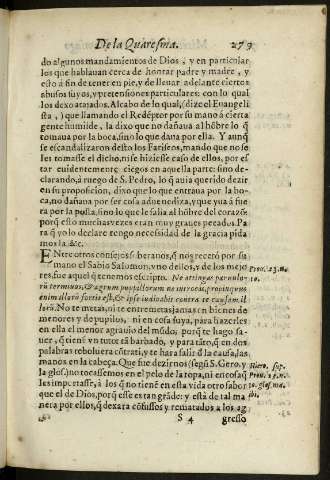 De la Quaresma. 279
do algunos mandamientos de Dios, y en particular
los que hablauan cerca de honrar padre y madre, y
esto à fin de tener en pie, y de lleuar adelante ciertos
abusos suyos, y pretensiones particulares con lo qual
los dexo atajados. Al cabo de lo qual, (dize el Euangeli
sta, ) que llamando el Redẽptor por su mano à cierta
gente humilde, la dixo que no dañaua al hõbre lo q̃
tomaua por la boca, sino lo que daua por ella. Y aunq̃
se escandalizaron desto los Fariseos, mando que no se
les tomasse el dicho, ni se hiziesse caso de ellos, por es
tar euidentemente ciegos en aquella parte: sino de-
clarando, à ruego de S. Pedro, lo q̃ auia querido dezir
en su proposicion, dixo que lo que entraua por la bo-
ca, no dañaua por ser cosa aduenediza, y que yua à fue
ra por la posta, sino lo que le salia al hõbre del coraçõ:
porq̃ esto muchas vezes eran muy graues pecados. Pa
ra q̃ yo lo declare tengo necessidad de la gracia pida
mos la &c.
ENtre otros consejos soberanos, q̃ nos recetò por su
mano el Sabio Salomon, vno dellos, y de los mejo
res, fue aquel que nemos escripto. Ne attingas paruulo-
rũ terminos, & agrum pupillorum ne introeas, propinquus
enim illorũ fortis est, & ipse iudicabit contra te causam il-
lorũ. No te metas, ni te entremetas jamas en bienes de
menores y de pupilos, ni en cosa suya, para hazerles
en ella el menor agrauio del mũdo; porq̃ te hago sa-
uer, q̃ tienẽ vn tutor tã barbado, y para tãto, q̃ en dos
palabras reboluera cõtra ti, y te hara salir d̃ la causa, las
manos en la cabeça. Que fue dezirnos (segũ S. Gero. y
la glos.) no tocassemos en el pelo de la ropa, ni en cosa q̃
les importasse, à los q̃ no tienẽ en esta vida otro fabor
que el de Dios, porq̃ esse es tan grãde: y està de tal ma
nera por ellos, q̃ dexara cõfusos y rematados à los ag
S 4 gresso
Prou. 23. n.
10.
Hiero. sup.
Prou. 23. n.
10. glos. ma
ibi.